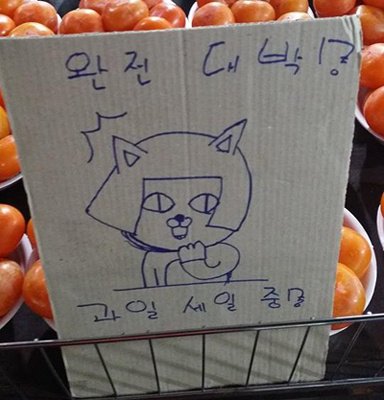 완전 대박
과일 세일 중